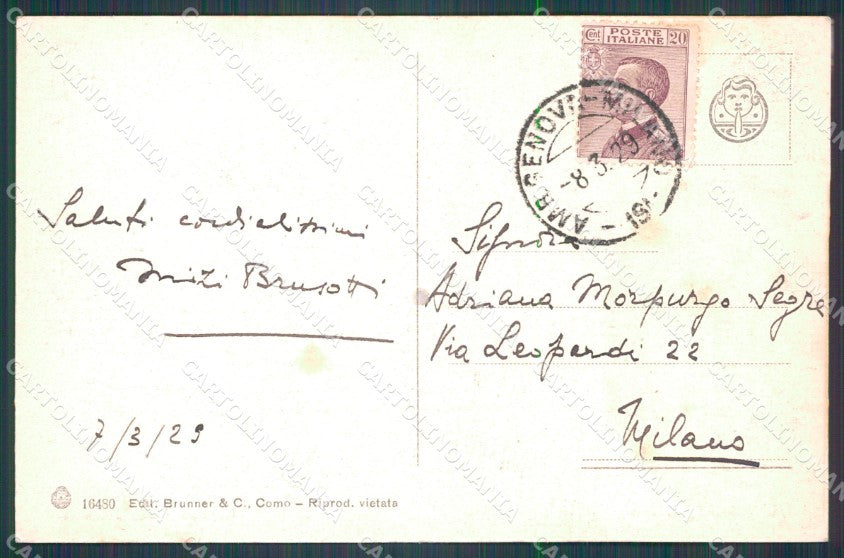 Saluti cordialissimi
Mizi Brusotti
7/3/29
16480 Edit. Brunner & C., Como – Riprod. vietata
Cent. POSTE ITALIANE 20
AMB. GENOVA-MILANO
-8.3.29
Signora
Adriana Morpurgo Segre
Via Leopardi 22
Milano
CARTOLINOMANIA